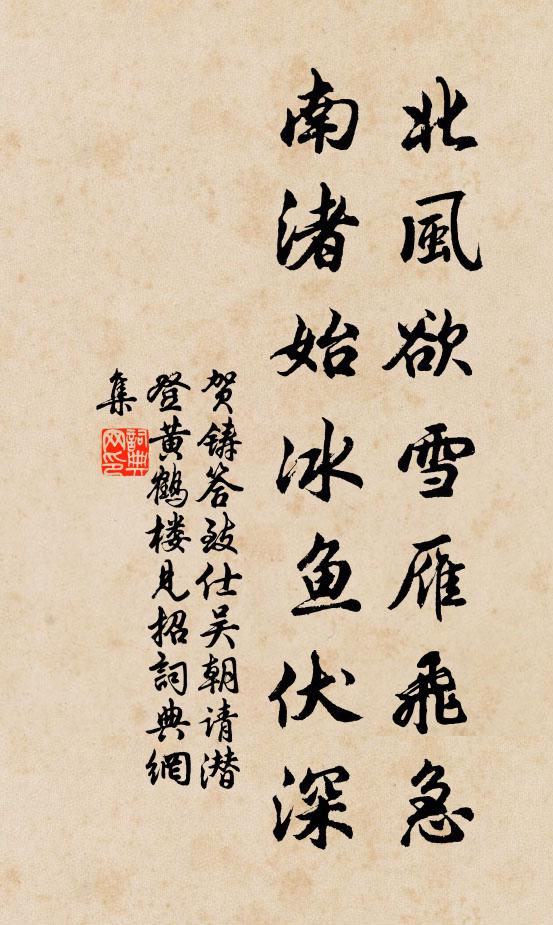 北風欲雪雁飛急
南渚始冰鱼伏深
贺铸答致仕吴朝请潜
登黄鹤楼见招詞典網
集
詞典
网印